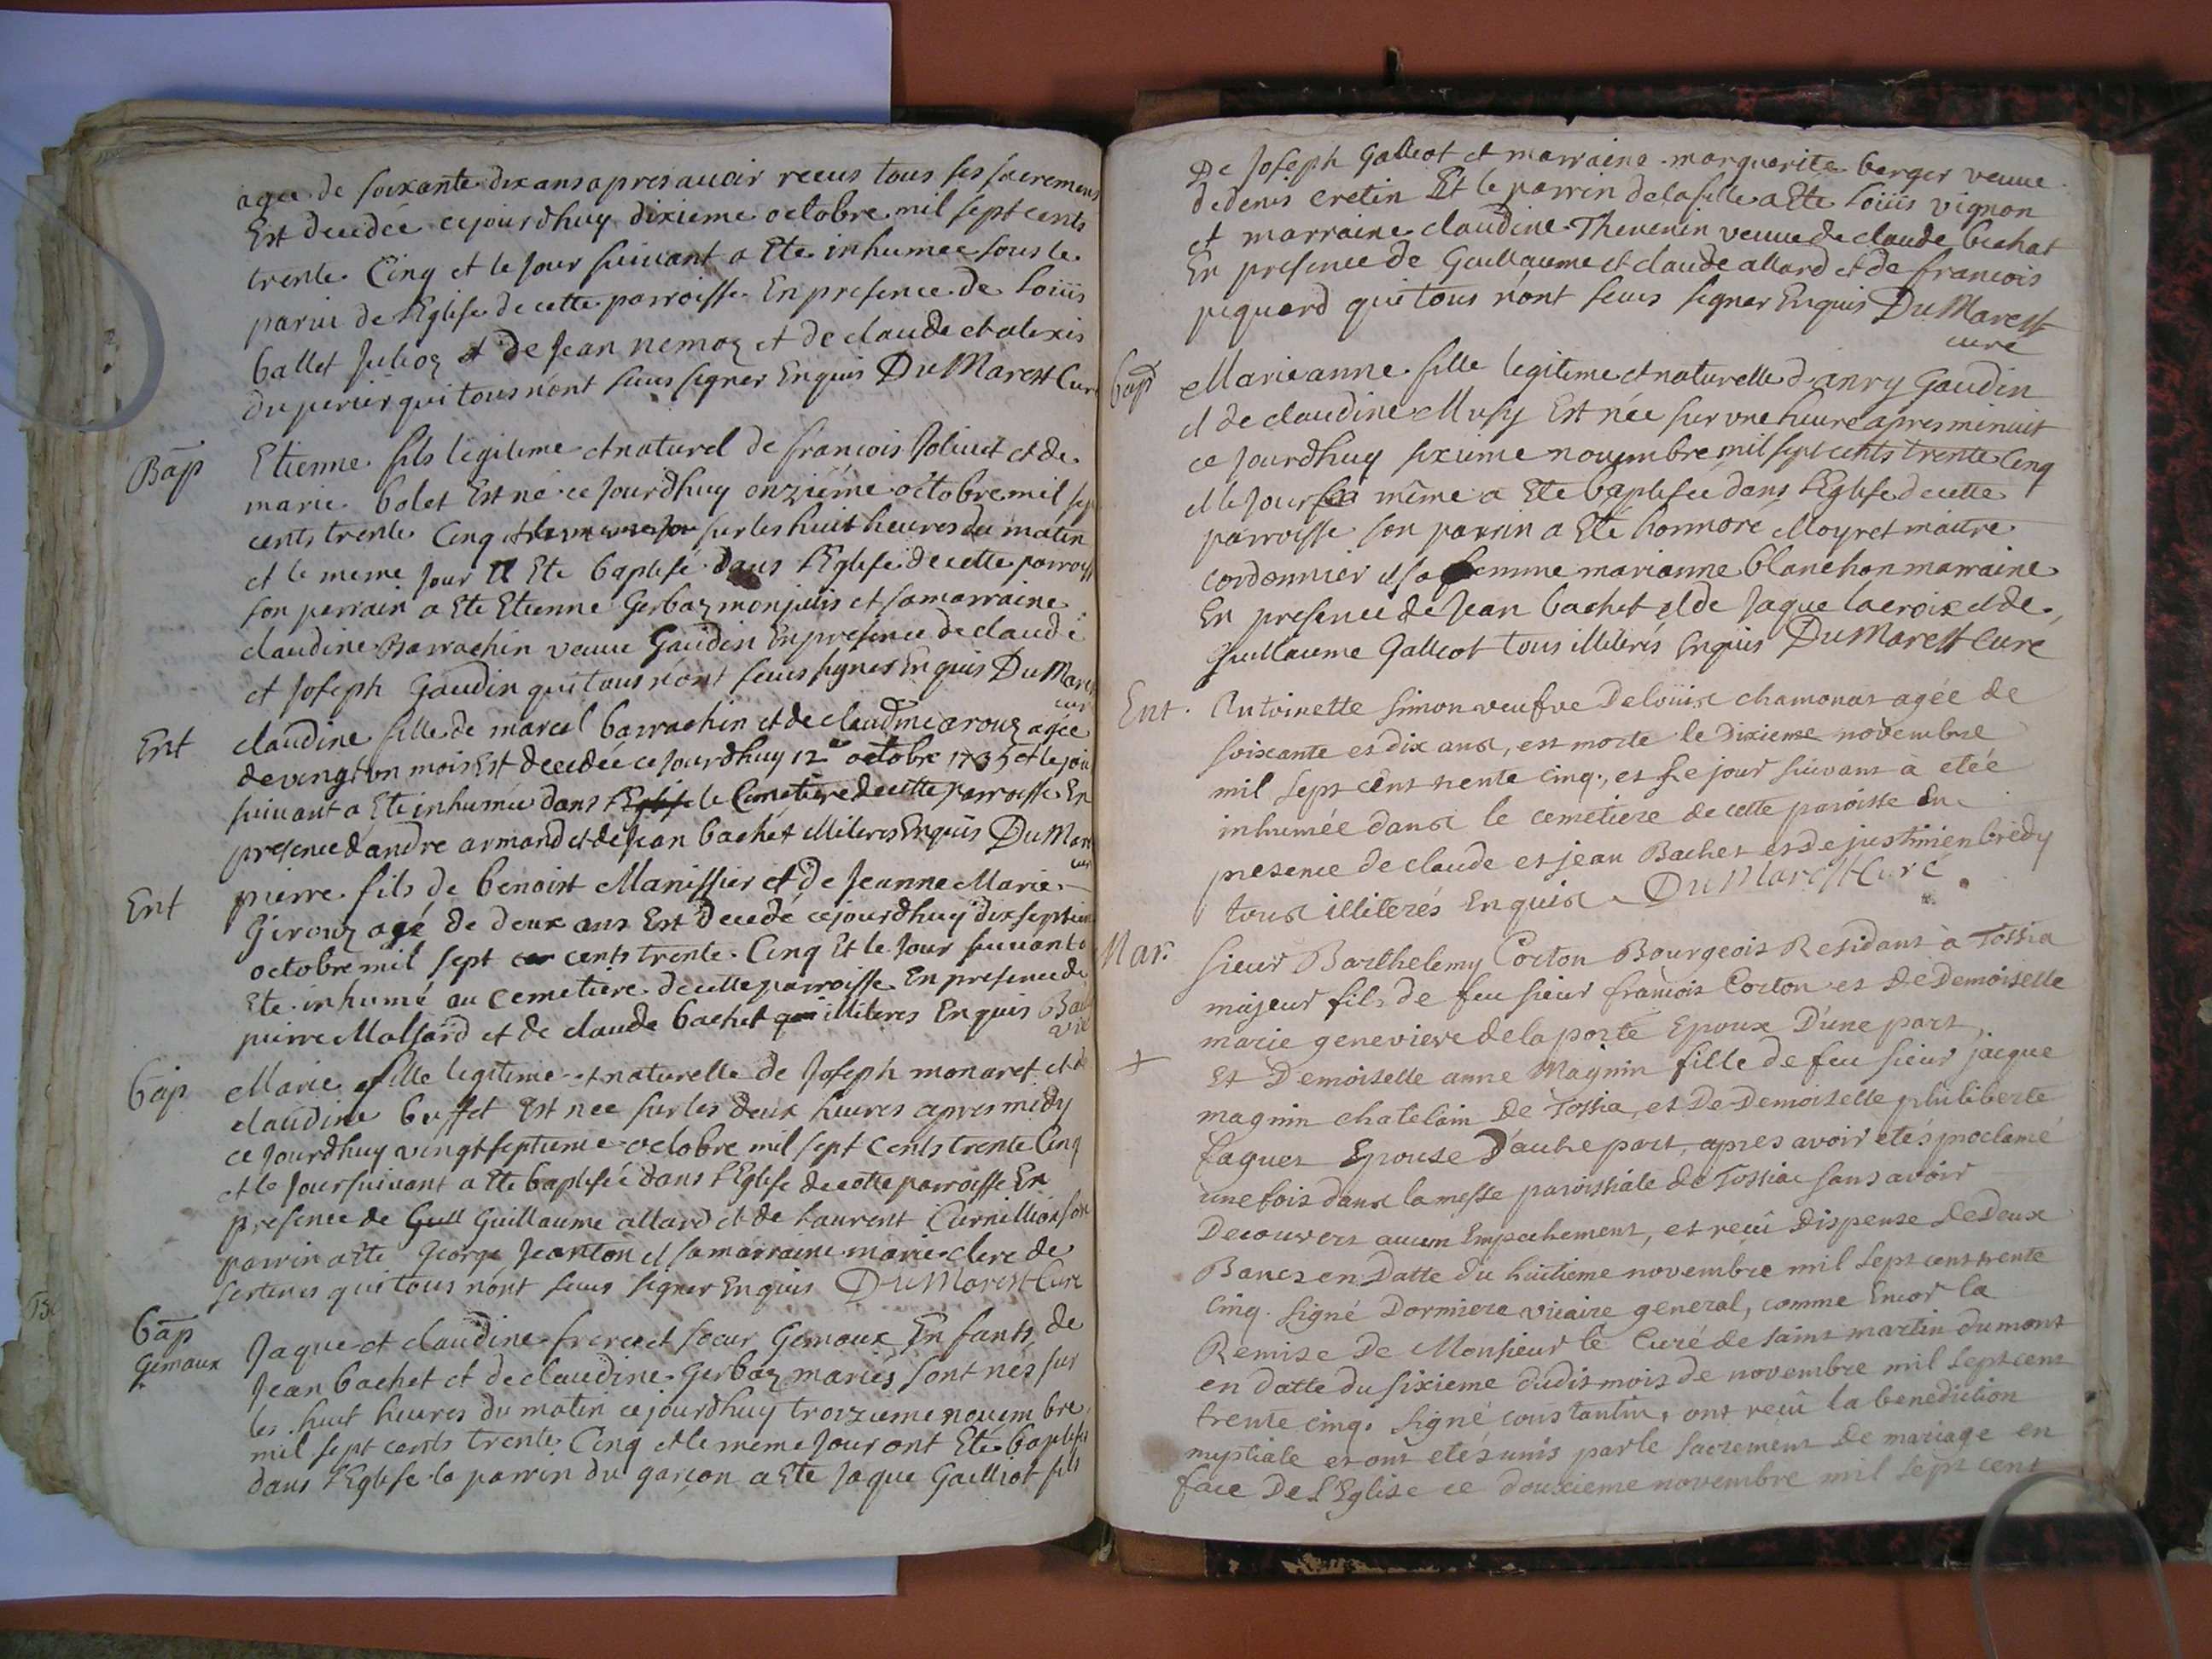 agée de soixante dix ans apres auoir receus tous ses sacremens
Est decedée cejourdhuy dixieme octobre mil sept cents
trente Cinq et le Jour suiuant a Ete inhumee sous le
parui de l'Eglise de cette parroisse En presence de Loüis
ballet Julioz et de Jean nemoz et de claude et alexis
duperier qui tous n'ont seus signer Enquis DuMarest Curé
Bap
Etienne fils legitime et naturel de francois Joliuet et de
marie bolet Est né ce Jourdhuy onziéme octobre mil sep
cents trente Cinq et le meme Jou sur les huit heures du matin
et le meme Jour Il Ete baptisé dans l'Eglise de cette parroiss
son perrain a Ete Etienne Gerbaz monjulis et sa marraine
claudine Barrachin veuue Gaudin En presence de claude
et Joseph Gaudin qui tous n'ont seus signer Enquis DuMares
cur
Ent
claudine fille de marcel barrachin et de claudine arouz agée
de vingt un mois Est decedée ce Jourdhuy 12e octobre 1735 et le jou
suiuant a Ete inhumée dans l'Eglise le Cimetiere de cette parroisse En
presence dandré armand et de Jean bachet illiterés Enquis DuMare
cur
Ent
pierre fils de benoist Manissier et de Jeanne Marie
Girouz agé de deux ans Est decedé cejourdhuy dix septiem
octobre mil sept cents trente Cinq Et le Jour suiuant a
Ete inhumé au Cemetiere de cette parroisse En presence de
pierre Malfard et de claude bachet qui illiteres Enquis
Bap
Marie fille legitime et naturelle de Joseph monaret et de
claudine buffet Est nee sur les deux heures apres midy
ce Jourdhuy vingt septieme octobre mil sept cents trente Cinq
et le Jour suiuant a Ete baptisée dans l'Eglise de cette parroisse En
presence de Guill Guillaume allard et de Laurent Curnillion son
parrin a Ete George Jeanton et sa marraine marie clerc de
sertines qui tous n'ont seus signer Enquis DuMarest Curé
Bap
Gemaux
Jaque et claudine frere et soeur Gemaux Enfants de
Jean bachet et de claudine Gerbaz mariés sont nés sur
les huit heures du matin cejourdhuy troizieme nouembre
mil sept cents trente Cinq et le meme Jour ont Eté baptisés
dans l'Eglise le parrin du garçon a Ete Jaque Galliot fils
De Joseph Galliot et marraine marguerite berger veuue
de denis cretin Et le parrin de la fille a Ete Loüis vignon
et marraine claudine Thevenin veuue de claude bachat
En presence de Guillaume et claude allard et de francois
piquard qui tous n'ont seus signer Enquis DuMarest
curé
bap
Marieanne fille legitime et naturelle d'anry Gaudin
et de claudine Musy Est née sur vne heure apres minuit
ce Jourdhuy sixieme nouembre mil sept cents trente Cinq
et le Jour même a Ete baptisée dans l'Eglise de cette
parroisse son parrin a Eté honnoré Moyret maitre
cordonnier et sa femme marianne blanchon marraine
En presence de Jean bachet et de Jaque lacroix et de
Guillaume Galliot tous illiterés Enquis DuMarest Curé
Ent.
Antoinette Simon veufve De loüis chamonar agée de
soixante et dix ans, est morte le Dixieme novembre
mil sept cent trente cinq, et le jour suivant a etéé
inhumée dans le cemetiere de cette paroisse En
presence de claude et jean Bachet et de justinien bredy
tous illiterés Enquis DuMarest Curé
Mar.
Sieur Barthelemy Corton Bourgeois Residant à Tossia
majeur fils de feu sieur françois Corton et De Demoiselle
marie genevieve de la porte Epoux D'une part,
+
Et Demoiselle anne Magnin fille de feu sieur jacque
magnin chatelain De Tossia, et De Demoiselle philiberte
faguet Epouse D'autre part, apres avoir etés proclamé
une fois dans la messe paroissiale de Tossiac sans avoir
Decouvert aucun Empechement, et reçu Dispense de Deux
Bancs en Datte du huitieme novembre mil sept cent trente
cinq. signé Dormiere vicaire general, comme Encor la
Remise De Monsieur le Curé de saint martin du mont
en datte du sixieme dudit mois de novembre mil sept cent
trente cinq. signé constantin, ont reçu la benediction
nuptiale et ont etés unis par le sacrement De mariage en
face De l'Eglise ce douxieme novembre mil sept cent